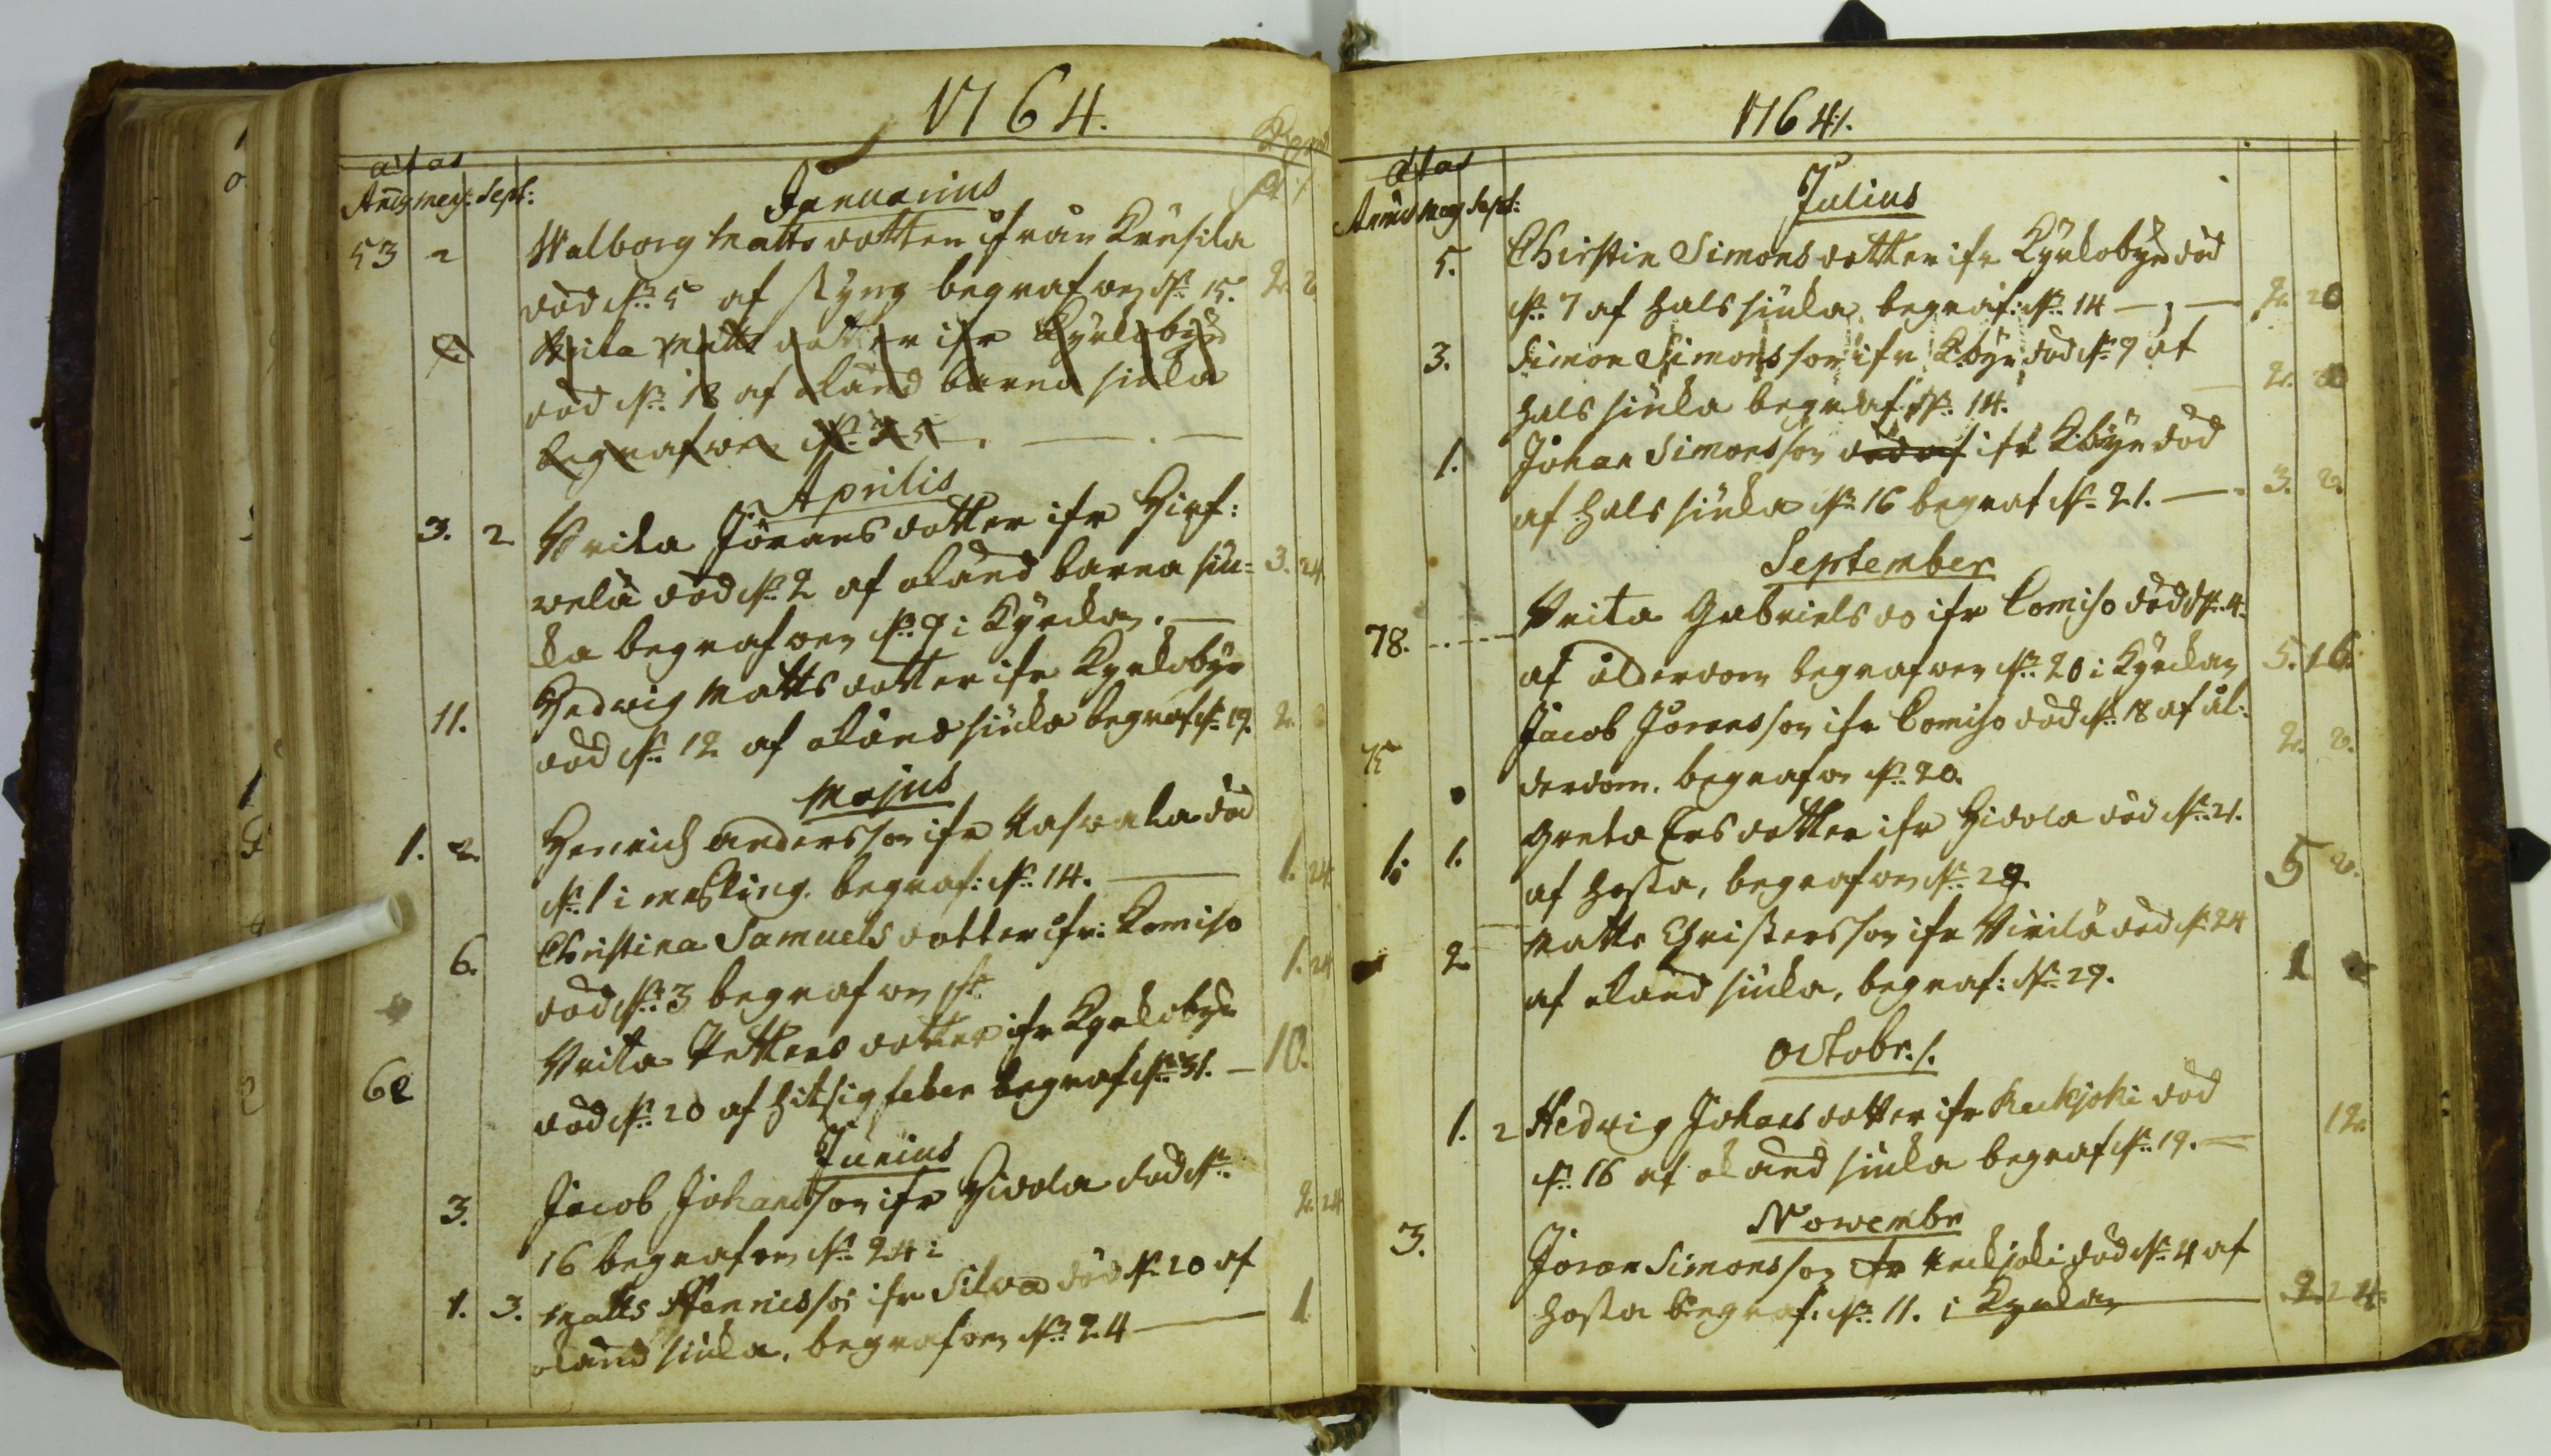 1764.
ætas
Añ: meñ: Sept:
Januarius
53 2 Walborg Matts dotter ifrån
död d. 5 af styng begrafwen d. 15. 2. 2
Brita Matts dotter ifr Kyrkobyn
död d. 18 af okänd barna siuka
begrafwen d. 25.
Aprilis
3. 2 Brita Jörans dotter ifr Hirf:
welä död d. 2 af okänd barna siu= 3. 24
ka begrafwen d. 9 i Kyrckan.
11. Hedwig Matts dotter ifr Kyrkobyn
död d. 12 af okänd siuka begraf d. 19. 2.
Majus
1. 2. Henrich Andersson ifr död
d. 1 i mässling. begraf: d. 14. 1. 24
6. Christina Samuels dotter ifr: Komiso
död d. 3 begrafwen d. 1. 24
Brita Petters dotter ifr Kyrkobyn
62 död d. 20 af hitsig feber begraf d. 31. 10.
Junius
3. Jacob Johansson ifr Hidola död d. 2. 24
16 begrafwen d. 24
1. 3. Matts Henricsson ifr Silva död d. 20 af
okänd siuka. begrafwen d. 24 1
1764.
ætas
Annus Meñ Sept:
Julius
5. Christin Simons dotter ifr Kyrkobyn död
d. 7 af hals siuka begraf: d. 14 2. 20
3. Simon Simonsson ifr K:byn död d. 9 af
hals siuka begraf. d. 14. 2. 20
1. Johan Simonsson död af ifr K:byn död
af hals siuka d. 16 begraf d. 21. 3. 2.
September
78. Brita Gabriels do ifr Comiso död d. 4.
af ålderdom begrafwen d. 20 i Kyrckan 5. 16
75 Jacob Joransson ifr Comiso död d. 18 af ål:
derdom. begrafwen d. 20. 2. 2.
1. 1. Greta Ers dotter ifr Hidola död d. 21.
af hosta, begrafwen d. 29. 5 2.
2 Matts Christersson ifr Virilä död d. 24
af okänd siuka, begraf: d. 29. 1
Octobr.
1. 2 Hedwig Johans dotter ifr Keckjoki död
d. 16 af okänd siuka begraf d. 19. 12.
Nowembr
3. Joran Simonsson ifr Keckjoki död d. 4 af
hosta begraf. d. 11. i Kyrckan 2. 24